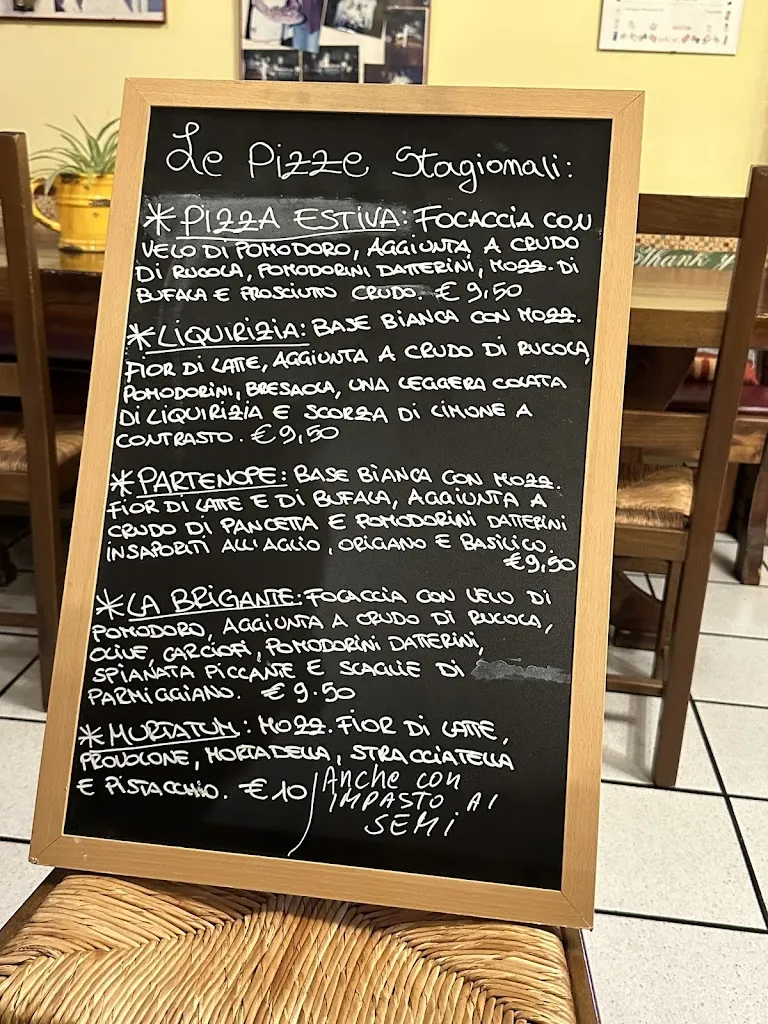 Le Pizze Stagionali:
* PIZZA ESTIVA: FOCACCIA CON
VELO DI POMODORO, AGGIUNTA A CRUDO
DI RUCOLA, POMODORINI DATTERINI, MOZZ. DI
BUFALA E PROSCIUTTO CRUDO. € 9,50
* LIQUIRIZIA: BASE BIANCA CON MOZZ.
FIOR DI LATTE, AGGIUNTA A CRUDO DI RUCOLA,
POMODORINI, BRESAOLA, UNA LEGGERA COLATA
DI LIQUIRIZIA E SCORZA DI LIMONE A
CONTRASTO. € 9,50
* PARTENOPE: BASE BIANCA CON MOZZ.
FIOR DI LATTE E DI BUFALA, AGGIUNTA A
CRUDO DI PANCETTA E POMODORINI DATTERINI
INSAPORITI ALL'AGLIO, ORIGANO E BASILICO.
€9,50
* LA BRIGANTE: FOCACCIA CON VELO DI
POMODORO, AGGIUNTA A CRUDO DI RUCOLA,
OLIVE, CARCIOFI, POMODORINI DATTERINI,
SPIANATA PICCANTE E SCAGLIE DI
PARMIGGIANO. € 9.50
* MORTATUM: MOZZ. FIOR DI LATTE,
PROVOLONE, MORTADELLA, STRACCIATELLA
E PISTACCHIO. € 10
Anche con
IMPASTO AI
SEMI
Thank y